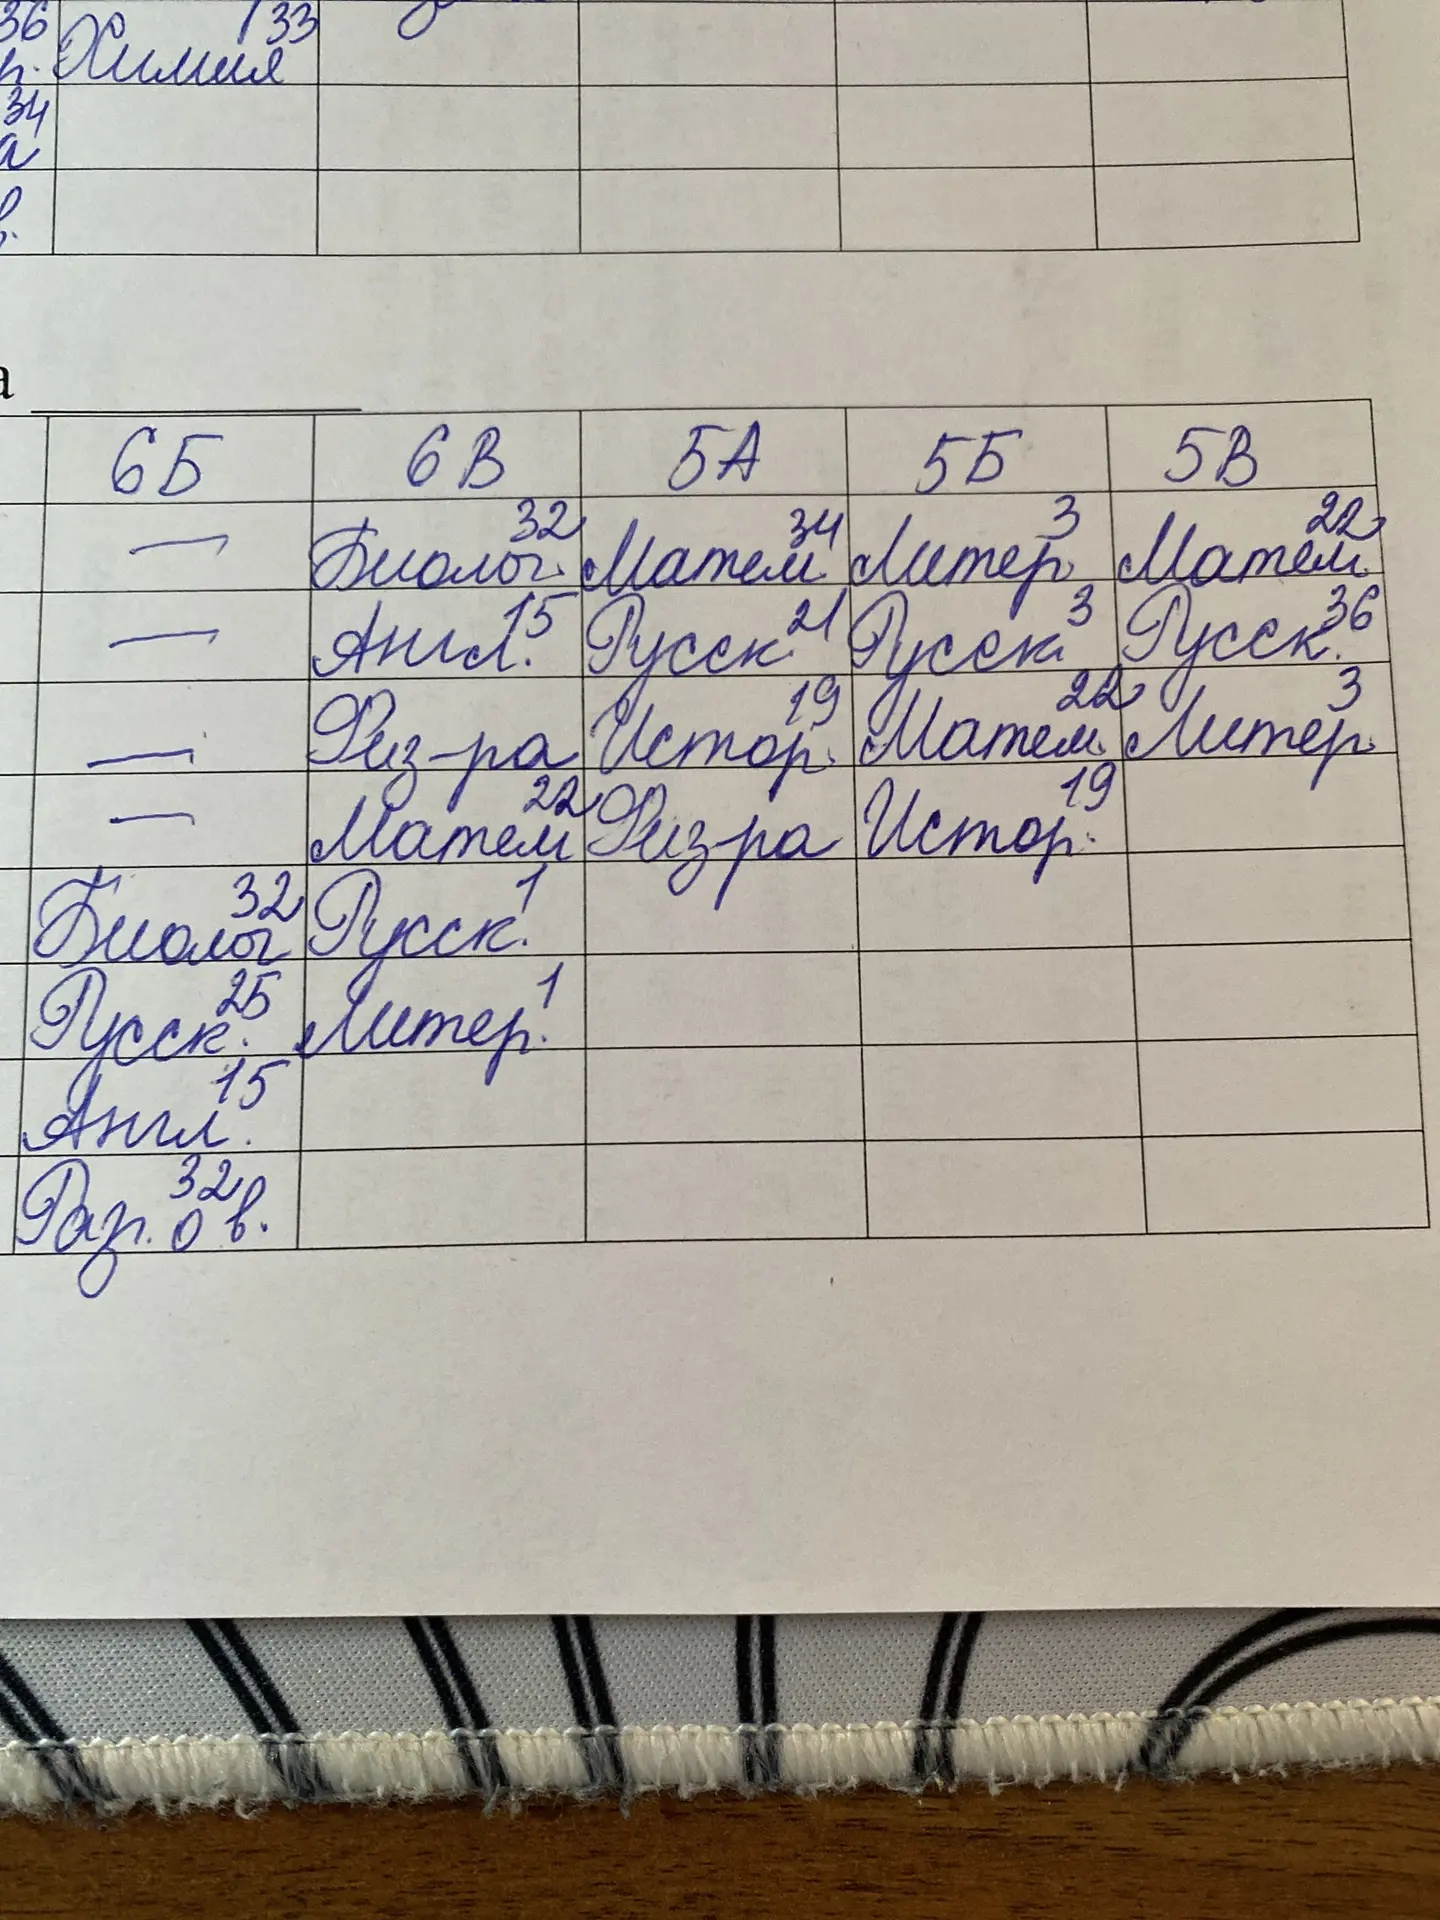 36 33
п. Химия
34
а
в.
а
6Б 6В 5А 5Б 5В
— Биолог. 32 Матем. 34 Литер. 3 Матем. 22
— Англ. 15 Русск. 21 Русск. 3 Русск. 36
— Физ-ра Истор. 19 Матем. 22 Литер. 3
— Матем 22 Физ-ра Истор. 19
Биолог 32 Русск. 1
Русск. 25 Литер. 1
Англ. 15
Раз. о в. 32